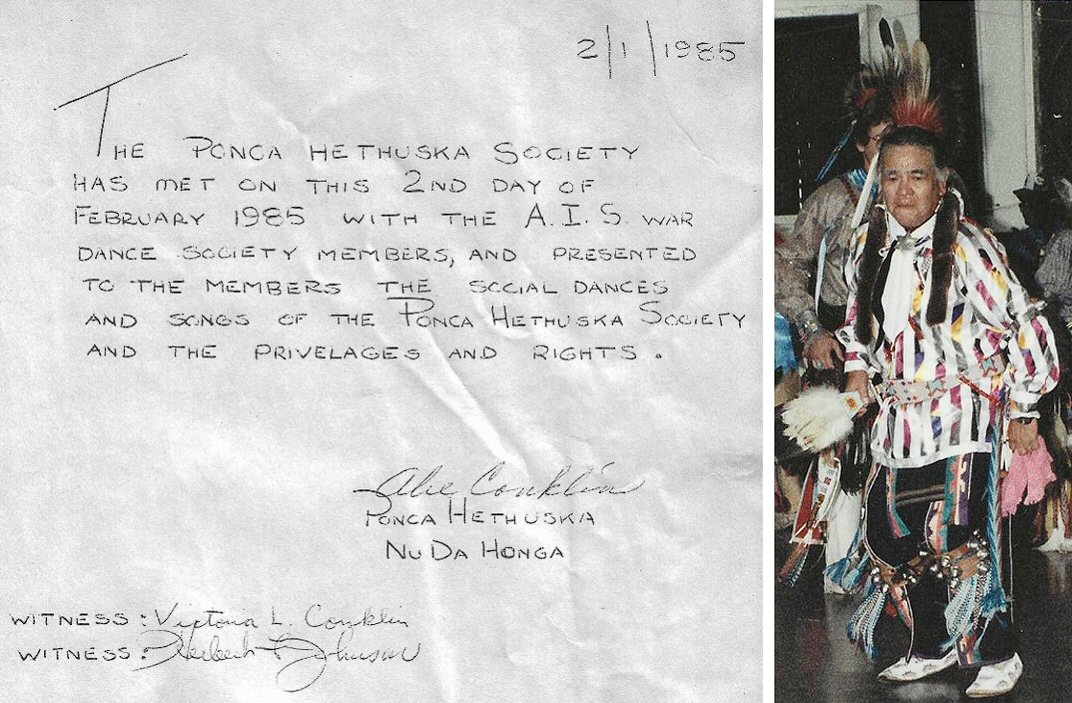 2/1/1985
THE PONCA HETHUSKA SOCIETY
HAS MET ON THIS 2ND DAY OF
FEBRUARY 1985 WITH THE A.I.S. WAR
DANCE SOCIETY MEMBERS, AND PRESENTED
TO THE MEMBERS THE SOCIAL DANCES
AND SONGS OF THE PONCA HETHUSKA SOCIETY
AND THE PRIVELAGES AND RIGHTS.
Abe Conklin
PONCA HETHUSKA
NUDA HONGA
WITNESS: Victoria L. Conklin
WITNESS: Herbert F. Johnson